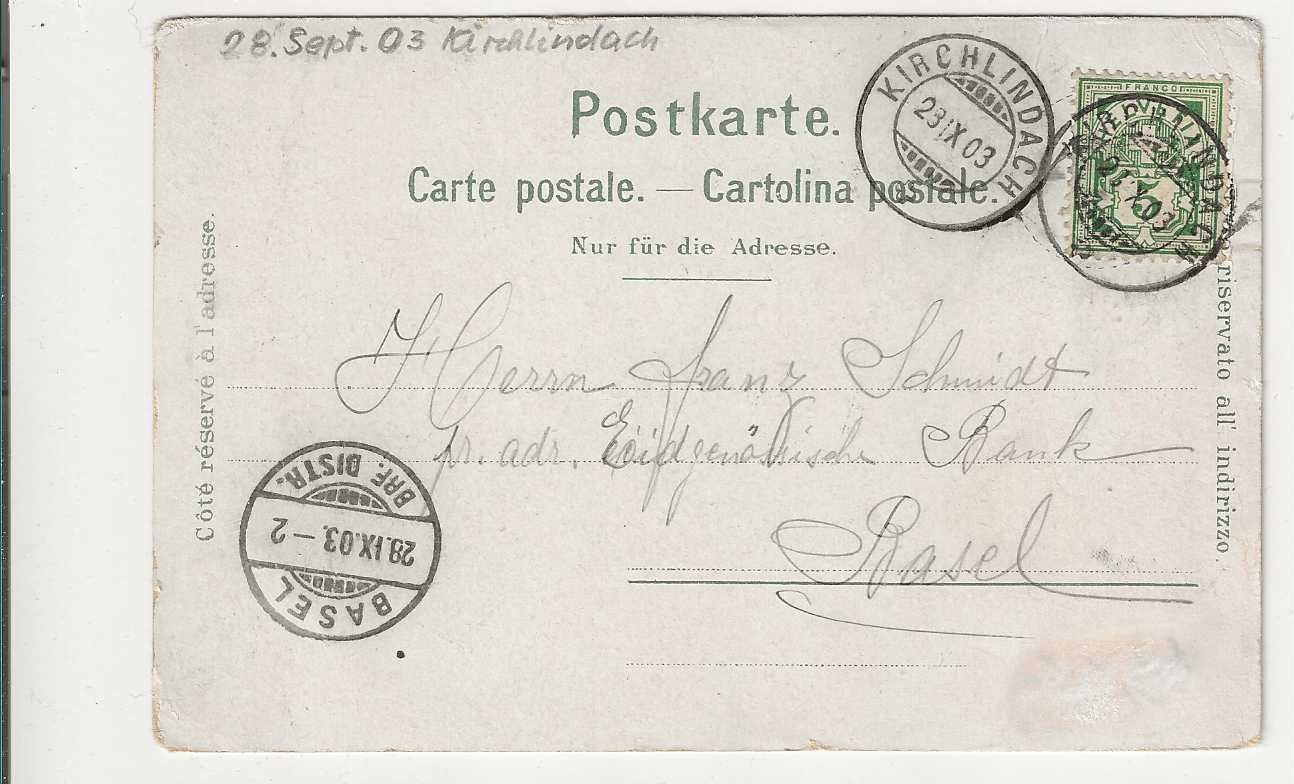 28. Sept. 03 Kirchlindach
Postkarte.
Carte postale. — Cartolina postale.
Nur für die Adresse.
KIRCHLINDACH
28 IX 03
FRANCO
5
Côté réservé à l'adresse.
riservato all' indirizzo.
Herrn Franz Schmidt
pr. adr. Eidgenössische Bank
Basel
BRF. DISTR.
28.IX.03.—2
BASEL